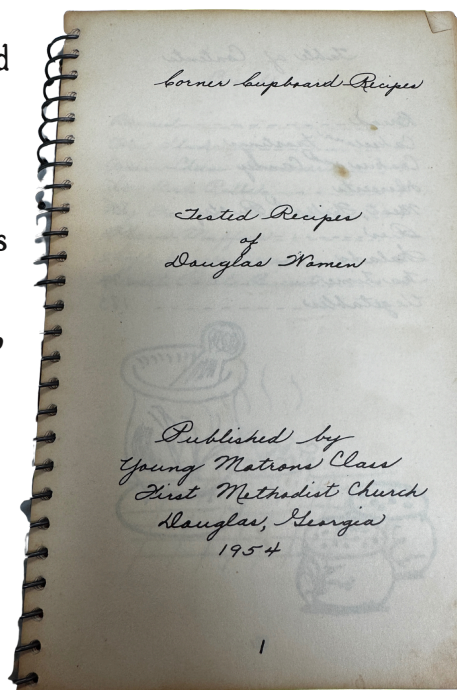 d
s
,
Corner Cupboard Recipes
Tested Recipes
of
Douglas Women
Published by
Young Matrons Class
First Methodist Church
Douglas, Georgia
1954
1